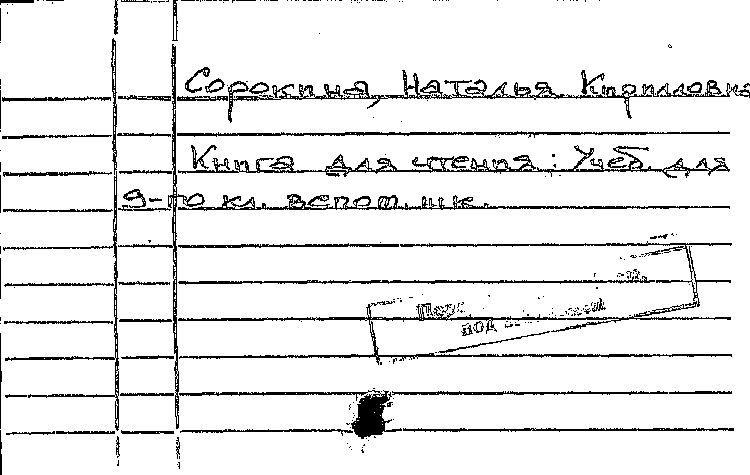 Сорокина, Наталья Кирилловна
Книга для чтения : Учеб. для
9-го кл. вспом. шк.
под